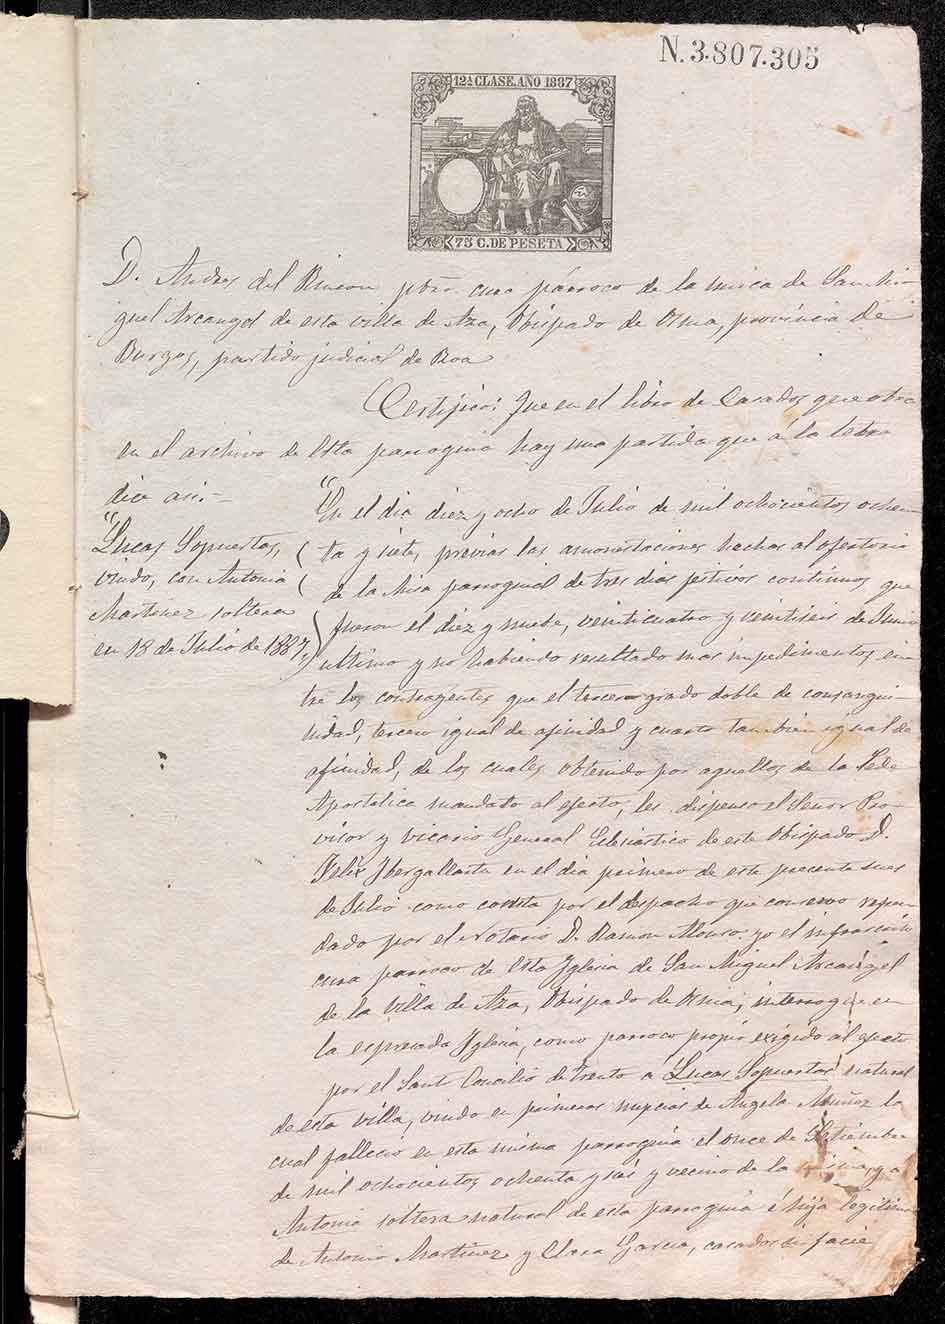 N. 3.807.305
12ª CLASE. AÑO 1887
75 C. DE PESETA
D. Andres del Rincon pbro cura párroco de la unica de San Mi
guel Arcangel de esta villa de Aza, Obispado de Osma, provincia de
Burgos, partido judicial de Roa
Certifico: que en el libro de Casados que obra
en el archivo de esta parroquia hay una partida que á la letra
dice asi.-
"Lucas Sopuertas,
viudo, con Antonia
Martinez soltera
en 18 de Julio de 1887."
"En el dia diez y ocho de Julio de mil ochocientos ochen
ta y siete, previas las amonestaciones hechas al ofertorio
de la Misa parroquial de tres dias festivos continuos que
fueron el diez y nueve, veinticuatro y veintiseis de Junio
ultimo y no habiendo resultado mas impedimentos en
tre los contrayentes que el tercer grado doble de consangui-
nidad, tercero igual de afinidad y cuarto tambien igual de
afinidad, de los cuales obtenido por aquellos de la Sede
Apostolica mandato al efecto, les dispenso el Señor Pro-
visor y vicario General Eclesiastico de este Obispado D.
Felix en el dia primero de este presente mes
de Julio como consta por el despacho que conservo refren
dado por el Notario D. Ramon Alonso yo el infrascrito
cura parroco de esta Iglesia de San Miguel Arcangel
de la villa de Aza, Obispado de Osma, interrogue en
la espresada Iglesia, como parroco propio exigido al efecto
por el Sant. Concilio de Trento a Lucas Sopuertas natural
de esta villa, viudo en primeras nupcias de Angela Muñoz la
cual fallecio en esta misma parroquia el once de Setiembre
de mil ochocientos ochenta y seis y vecino de la misma, y a
Antonia soltera natural de esta parroquia é hija legitima
de Antonio Martinez y Clara Garcia, casados in facie